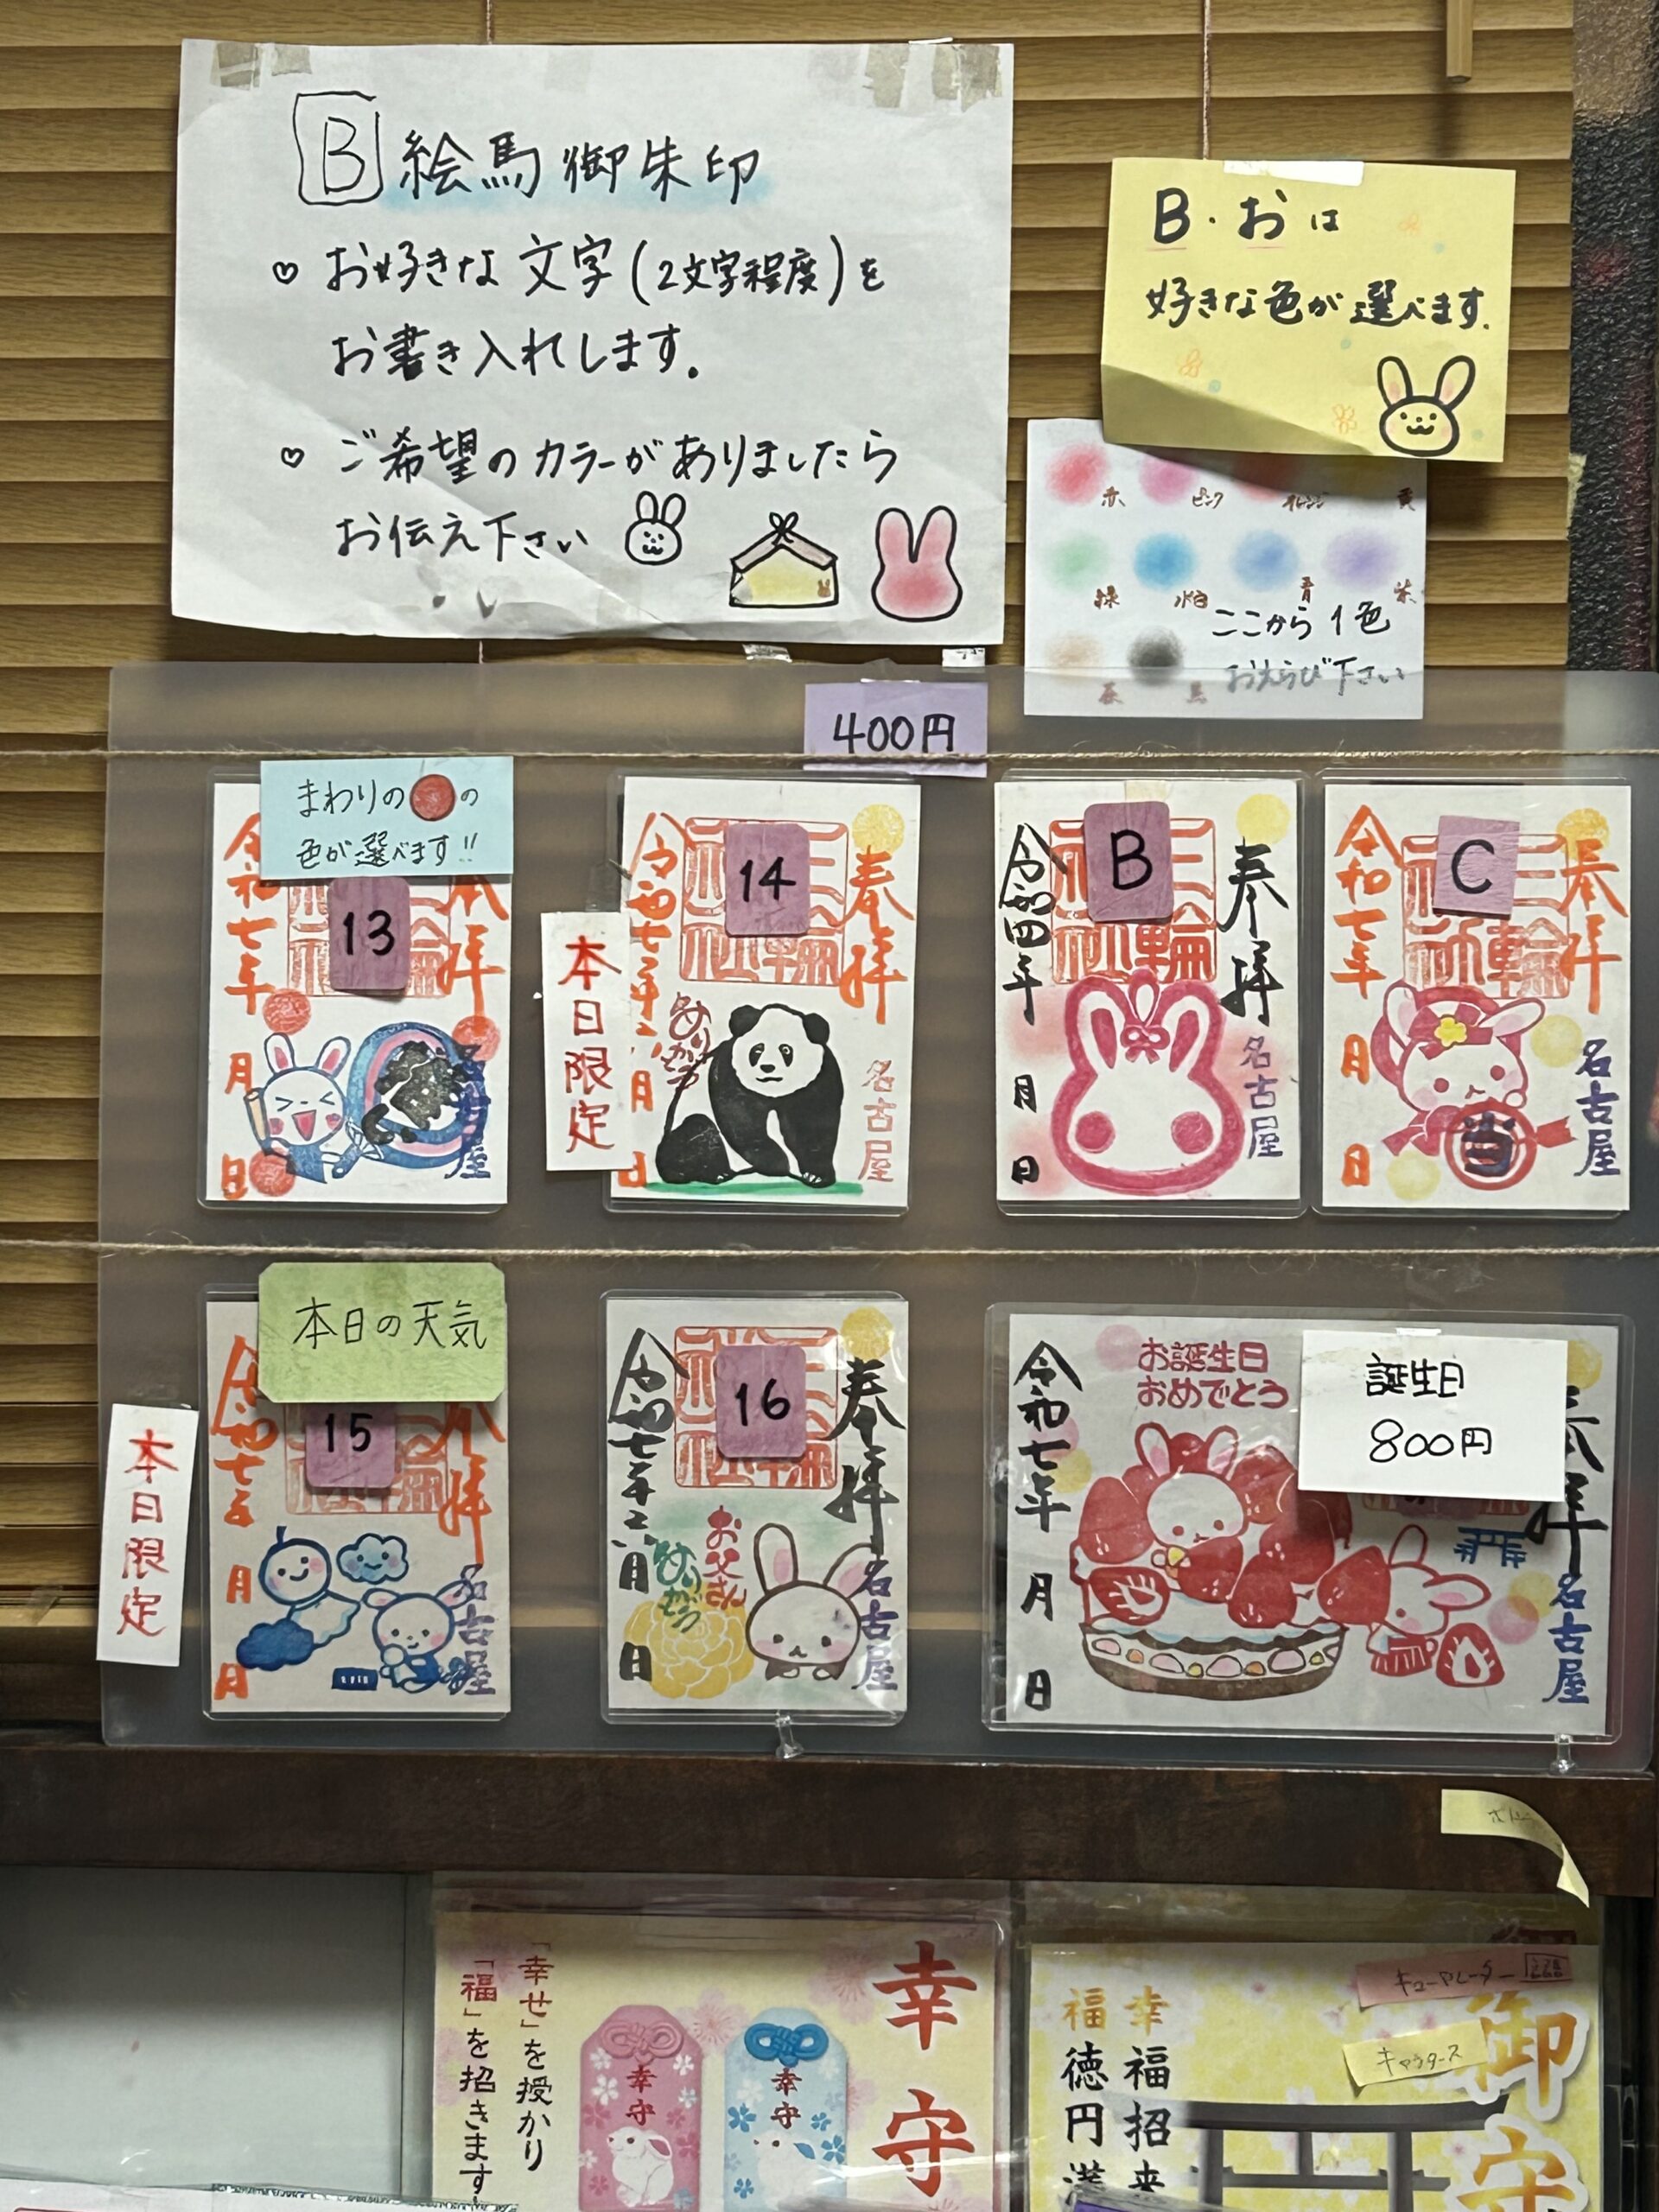 B 絵馬御朱印
♡ お好きな文字(2文字程度)を
お書き入れします。
♡ ご希望のカラーがありましたら
お伝え下さい
B・おは
好きな色が選べます.
赤 ピンク オレンジ 黄
緑 水色 青 紫
茶 黒
ここから1色
おえらび下さい
400円
まわりの●の
色が選べます!!
13
令和七年
月
日
拝
名古屋
本日限定
14
奉拝
三輪神社
令和七年
月
日
名古屋
B
奉拝
令和四年
月
日
名古屋
C
奉拝
令和七年
月
日
名古屋
当
本日の天気
本日限定
15
令和七年
月
日
拝
名古屋
16
奉拝
令和七年
月
日
お父さん
名古屋
お誕生日
おめでとう
誕生日
800円
奉拝
令和七年
月
日
名古屋
幸守
「幸せ」を授かり
「福」を招きます
幸守
幸守
御守
幸福招来
福徳円満
キューアレーター
キャラクタース